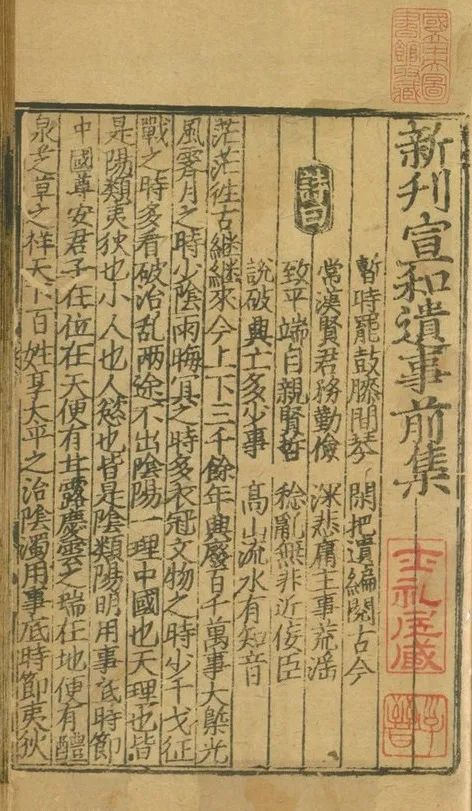 新刊宣和遺事前集
士礼居藏
詩曰
暫時罷鼓膝間琴 閑把遺編閱古今
常漢賢君務勤儉 深悲庸主事荒淫
致平端自親賢哲 稔亂無非近佞臣
說破興亡多少事 高山流水有知音
茫茫往古継継來今上下三千餘年興廢百千萬事大槩光
風霽月之時少陰雨晦冥之時多衣冠文物之時少干戈征
戰之時多看破治乱兩途不出陰陽一理中國也天理也皆
是陽類夷狄也小人也人慾也皆是陰類陽明用事底時節
中國尊安君子在位在天便有甘露慶雲之瑞在地便有醴
泉芝草之祥天下百姓享大平之治陰濁用事底時節夷狄